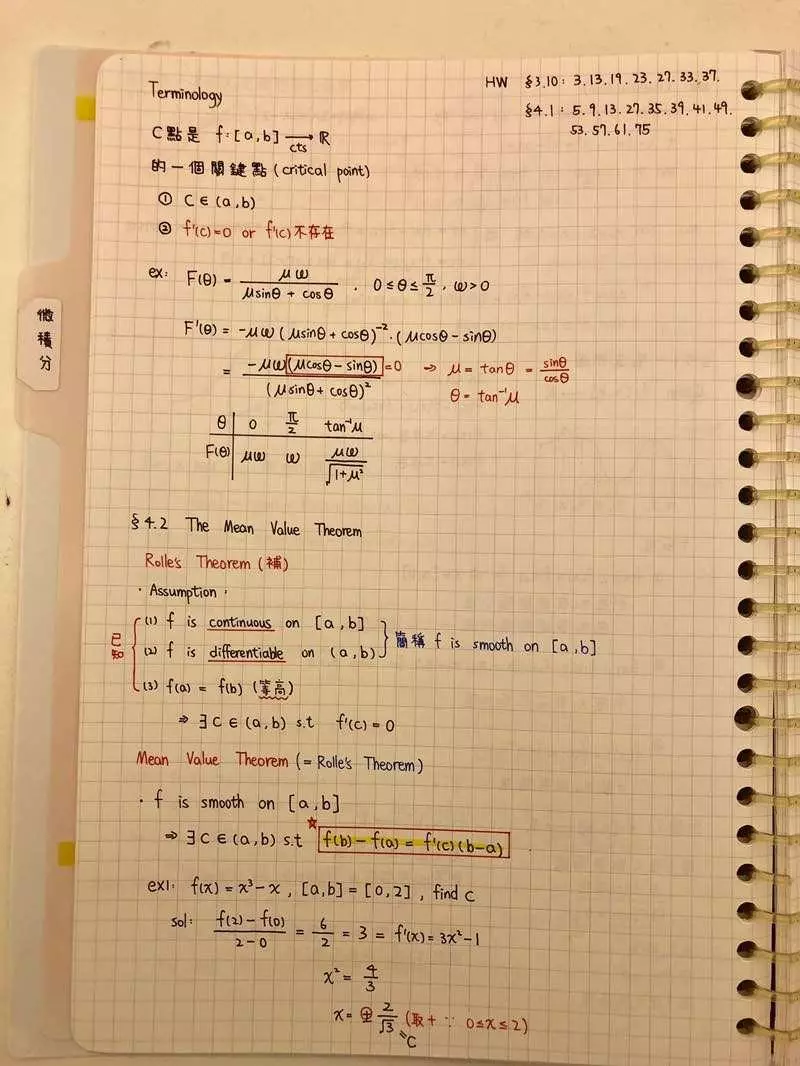 HW §3.10: 3.13.19.23.27.33.37.
§4.1: 5.9.13.27.35.39.41.49.
53.57.61.75
Terminology
C點是 f:[a,b] →cts ℝ
的一個關鍵點(critical point)
① C∈(a,b)
② f'(c)=0 or f'(c)不存在
ex: F(θ) = μω/(μsinθ + cosθ) , 0≤θ≤π/2, ω>0
F'(θ) = -μω(μsinθ + cosθ)⁻²·(μcosθ - sinθ)
= -μω(μcosθ - sinθ)/(μsinθ + cosθ)² =0 → μ = tanθ = sinθ/cosθ
θ = tan⁻¹μ
θ 0 π/2 tan⁻¹μ
F(θ) μω ω μω/√(1+μ²)
微積分
§4.2 The Mean Value Theorem
Rolle's Theorem(補)
· Assumption,
已知
(1) f is continuous on [a,b]
(2) f is differentiable on (a,b)
簡稱 f is smooth on [a,b]
(3) f(a) = f(b) (等高)
⇒ ∃C∈(a,b) s.t f'(c)=0
Mean Value Theorem (=Rolle's Theorem)
· f is smooth on [a,b]
⇒ ∃C∈(a,b) s.t ★ f(b)-f(a) = f'(c)(b-a)
ex1: f(x) = x³-x , [a,b] = [0,2] , find C
sol: (f(2)-f(0))/(2-0) = 6/2 = 3 = f'(x) = 3x²-1
x² = 4/3
x = ⊕ 2/√3 (取+ ∵ 0≤x≤2)
=C